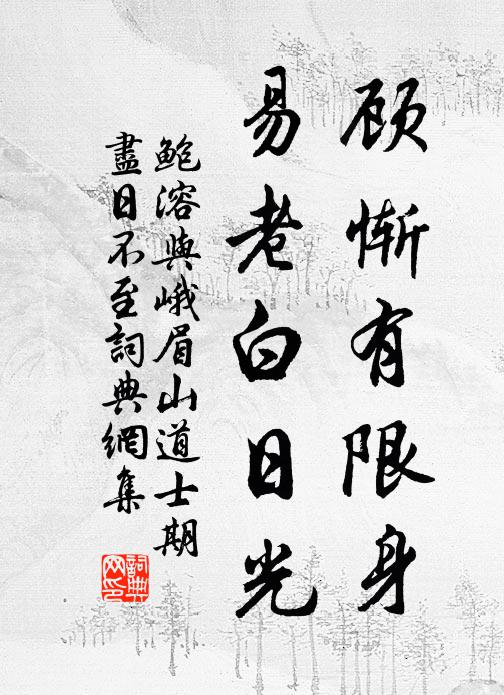 顾惭有限身
易老白日光
鲍溶與峨眉山道士期
盡日不至詞典網集
詞典网印